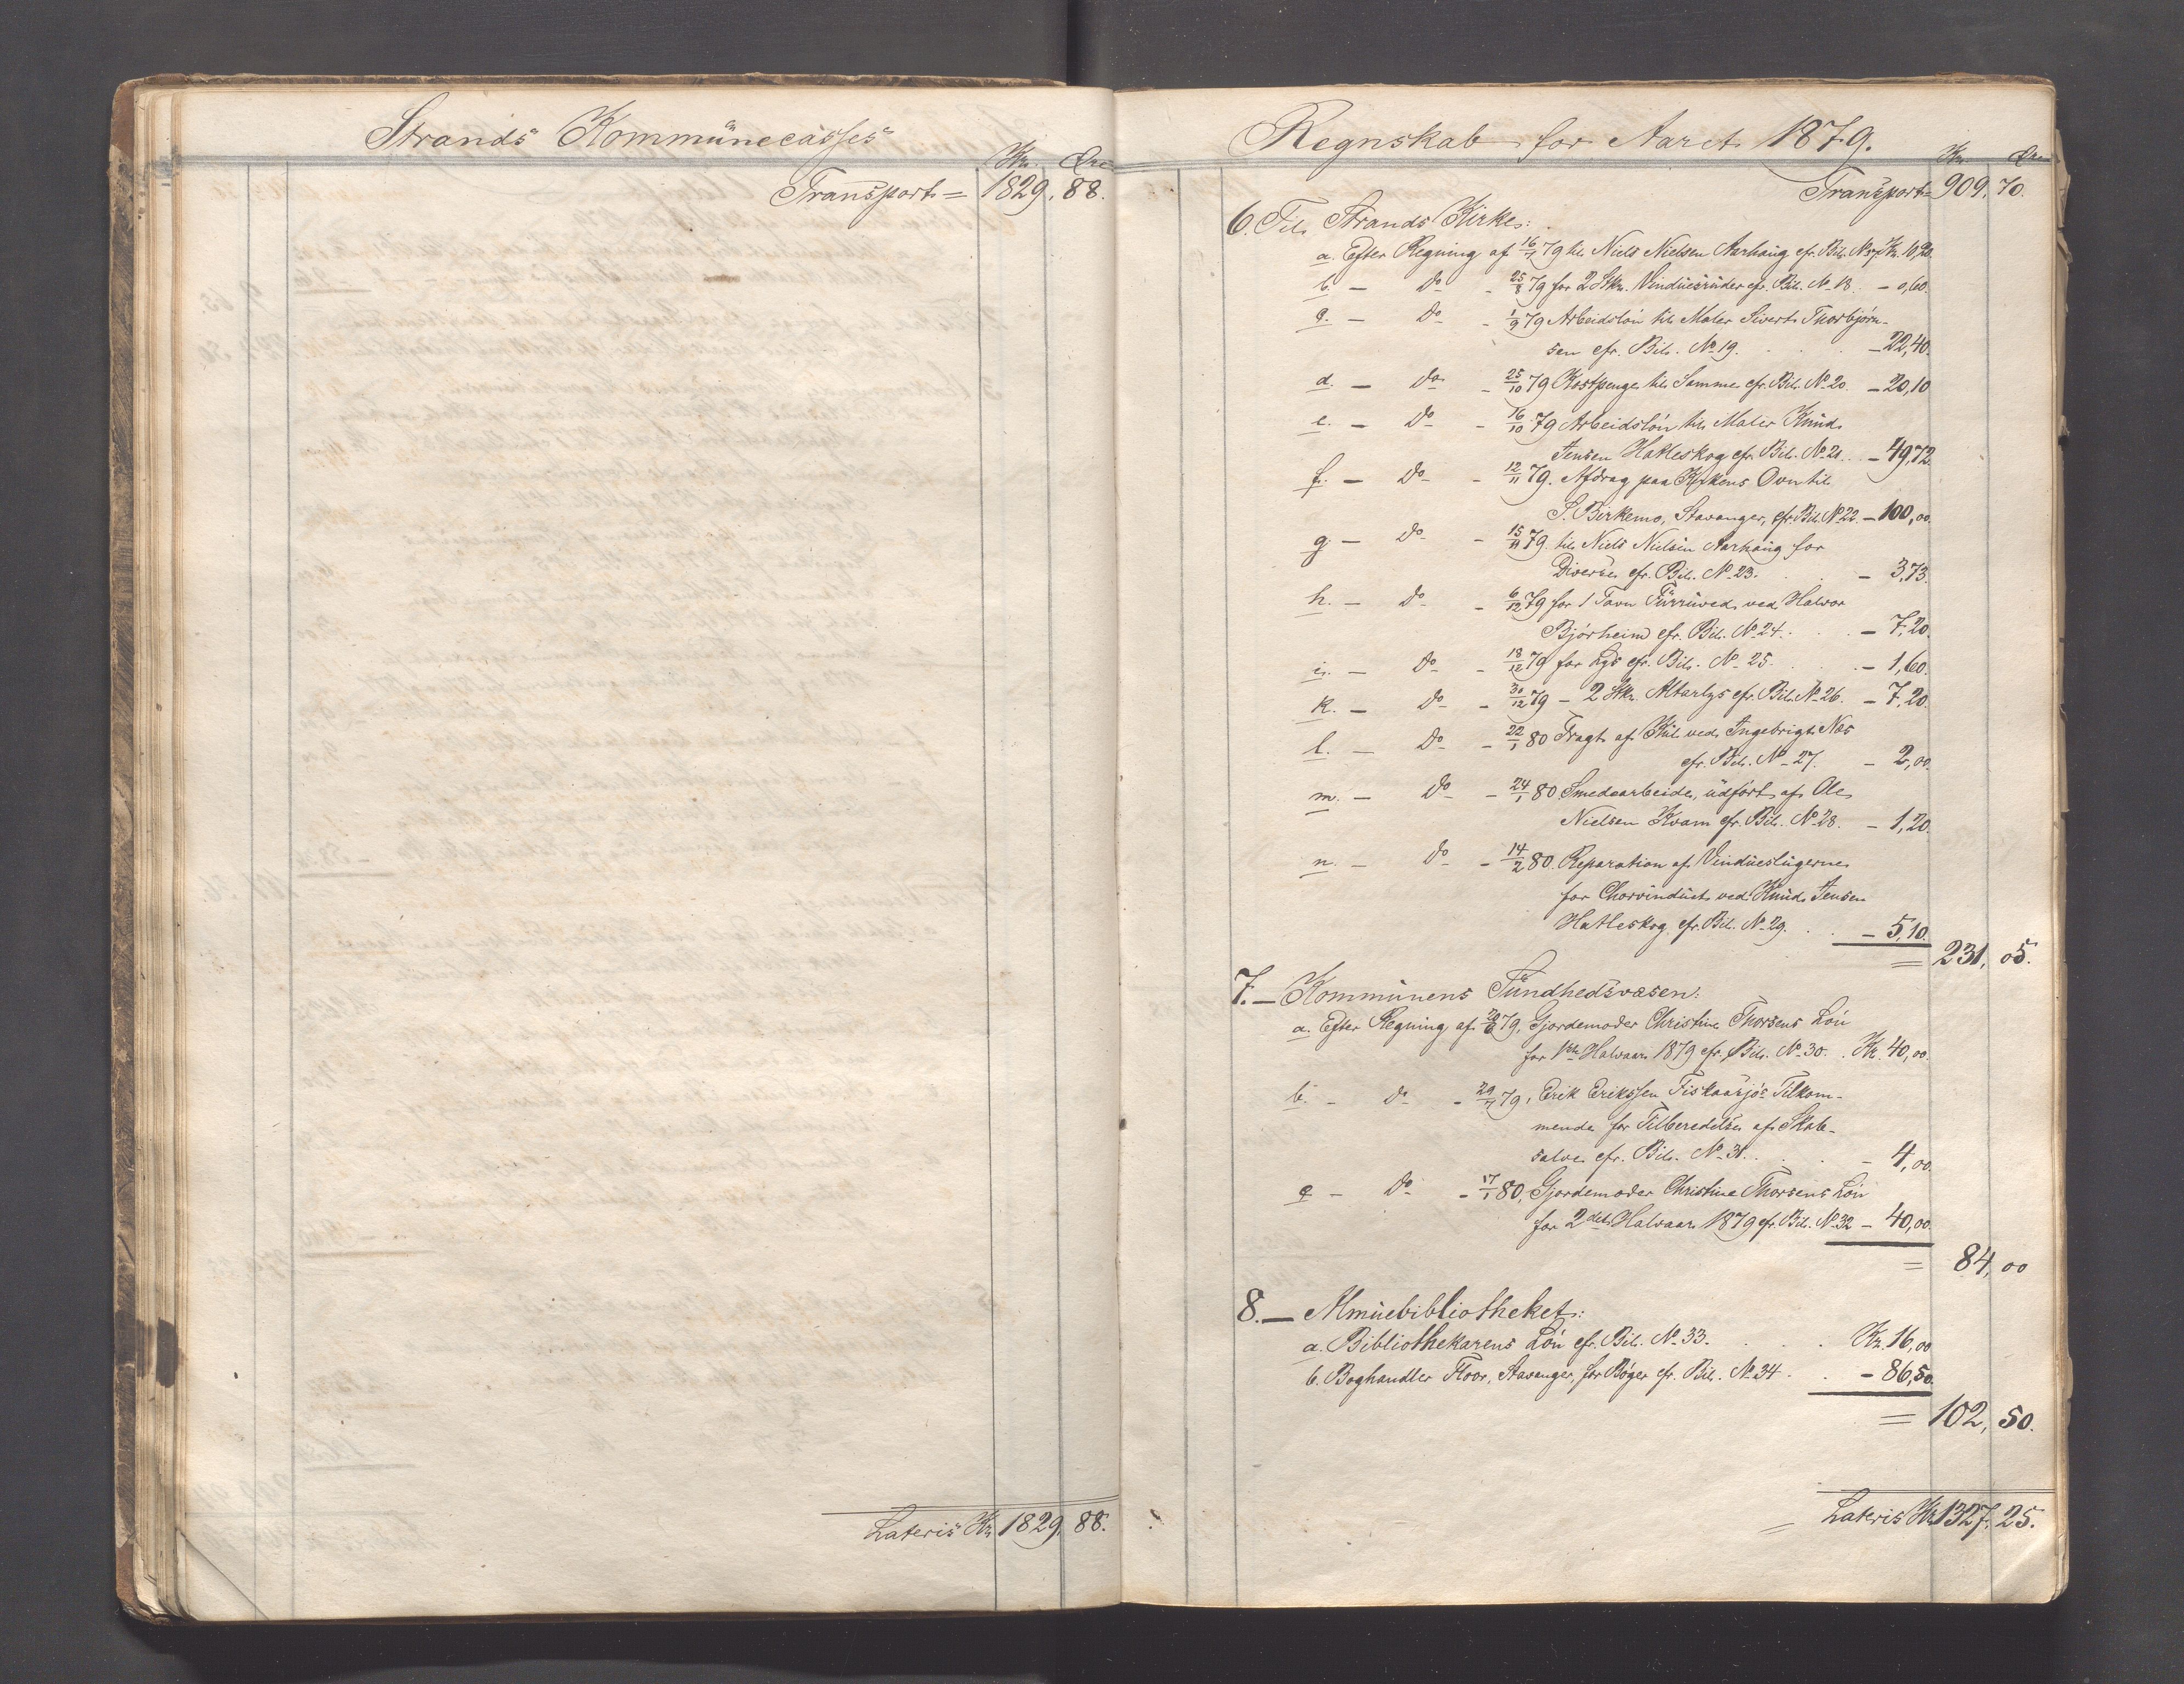 Strands Kommünecasses
Kr. Øre
Transport = 1829, 88.
Lateris Kr. 1829, 88.
Regnskab for Aaret 1879.
Kr. Øre
Transport = 909, 70.
6. Til Strands Kirke:
a. Efter Regning af 16/7 79 til Niels Nielsen Aarhaug cfr. Bil. No 17 Kr. 10,20.
b. — Do - 25/8 79 for 2 Stkr. Vinduesrüder cfr. Bil. No 18. - 0,60.
c. — Do - 1/9 79 Arbeidsløn til Maler Sivert Thorbjørn-
sen cfr. Bil. No 19. - 22,40.
d. — do - 25/10 79 Kostpenge til Samme cfr. Bil. No 20. - 20,10
e. — Do - 16/10 79 Arbeidsløn til Maler Knud
Jensen Hatleskog cfr. Bil. No 21. - 49,72.
f. — Do - 12/11 79. Afdrag paa Kirkens Ovn til
S. Birkemo, Stavanger, cfr. Bil. No 22. - 100,00.
g. — Do - 15/11 79. til Niels Nielsen Aarhaug for
Diverse cfr. Bil. No 23. - 3,73.
h. — Do - 6/12 79 for 1 Favn Fürrüved ved Halvor
Bjørheim cfr. Bil. No 24. - 7,20.
i. — Do - 18/12 79 for Lys cfr. Bil. No 25. - 1,60.
k. — Do - 30/12 79 - 2 Stkr. Alterlys cfr. Bil. No 26. - 7,20.
l. — Do - 22/1 80 Fragt af Kul ved Ingebrigt Næs
cfr. Bil. No 27. - 2,00.
m. — Do - 24/1 80 Smedearbeide, üdført af Ole
Nielsen Kvam cfr. Bil. No 28. - 1,20.
n. — Do - 14/2 80. Reparation af Vindueslügerne
for Chorvinduet ved Knud Jensen
Hatleskog, cfr. Bil. No 29. - 5,10.
= 231, 05.
7. — Kommünens Sündhedsvæsen:
a. Efter Regning af 79, Gjordemoder Christine Thorsens Løn
for 1ste Halvaar 1879 cfr. Bil. No 30. Kr. 40,00.
b. - do - 29/11 79, Erik Erikssen Fiskaasjø's Tilkom-
mende for Tilberedelse af Skab-
salve cfr. Bil. No 31. - 4,00.
c - Do - 17/1 80, Gjordemoder Christine Thorsens Løn
for 2det Halvaar 1879 cfr. Bil. No 32 - 40,00.
= 84, 00
8. — Almüebibliotheket:
a. Bibliothekarens Løn cfr. Bil. No 33. Kr. 16,00
b. Boghandler Floor, Stavanger, for Bøger cfr. Bil. No 34 - 86,50.
= 102, 50.
= Lateris Kr. 1327, 25.